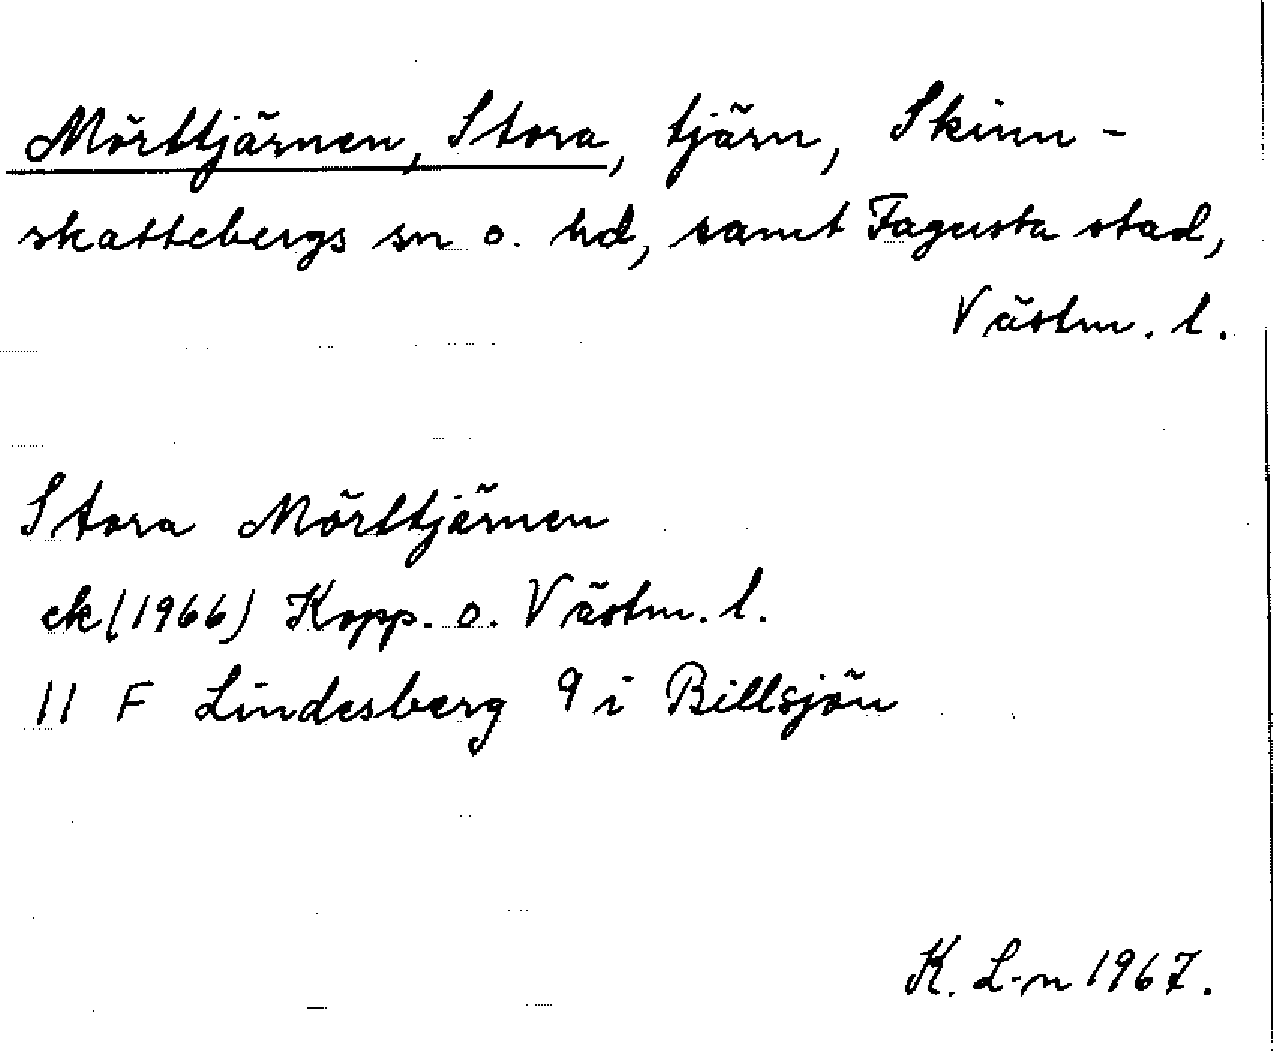 Mörttjärnen, Stora, tjärn, Skinn-
skattebergs sn o. hd, samt Fagersta stad,
Västm. l.
Stora Mörttjärnen
ek (1966) Kopp. o. Västm. l.
11 F Lindesberg 9 i Billsjön
K. L-n 1967.